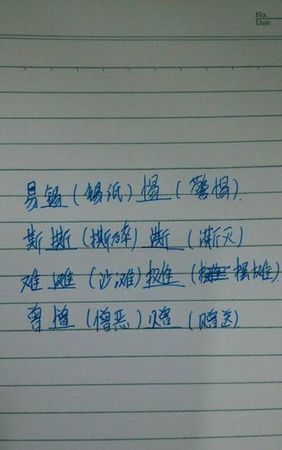 No.
Date
易锡(锡纸)惕(警惕).
斯撕(撕碎)澌(澌灭)
难滩(沙滩)摊(摆摊)
曾憎(憎恶)赠(赠送)